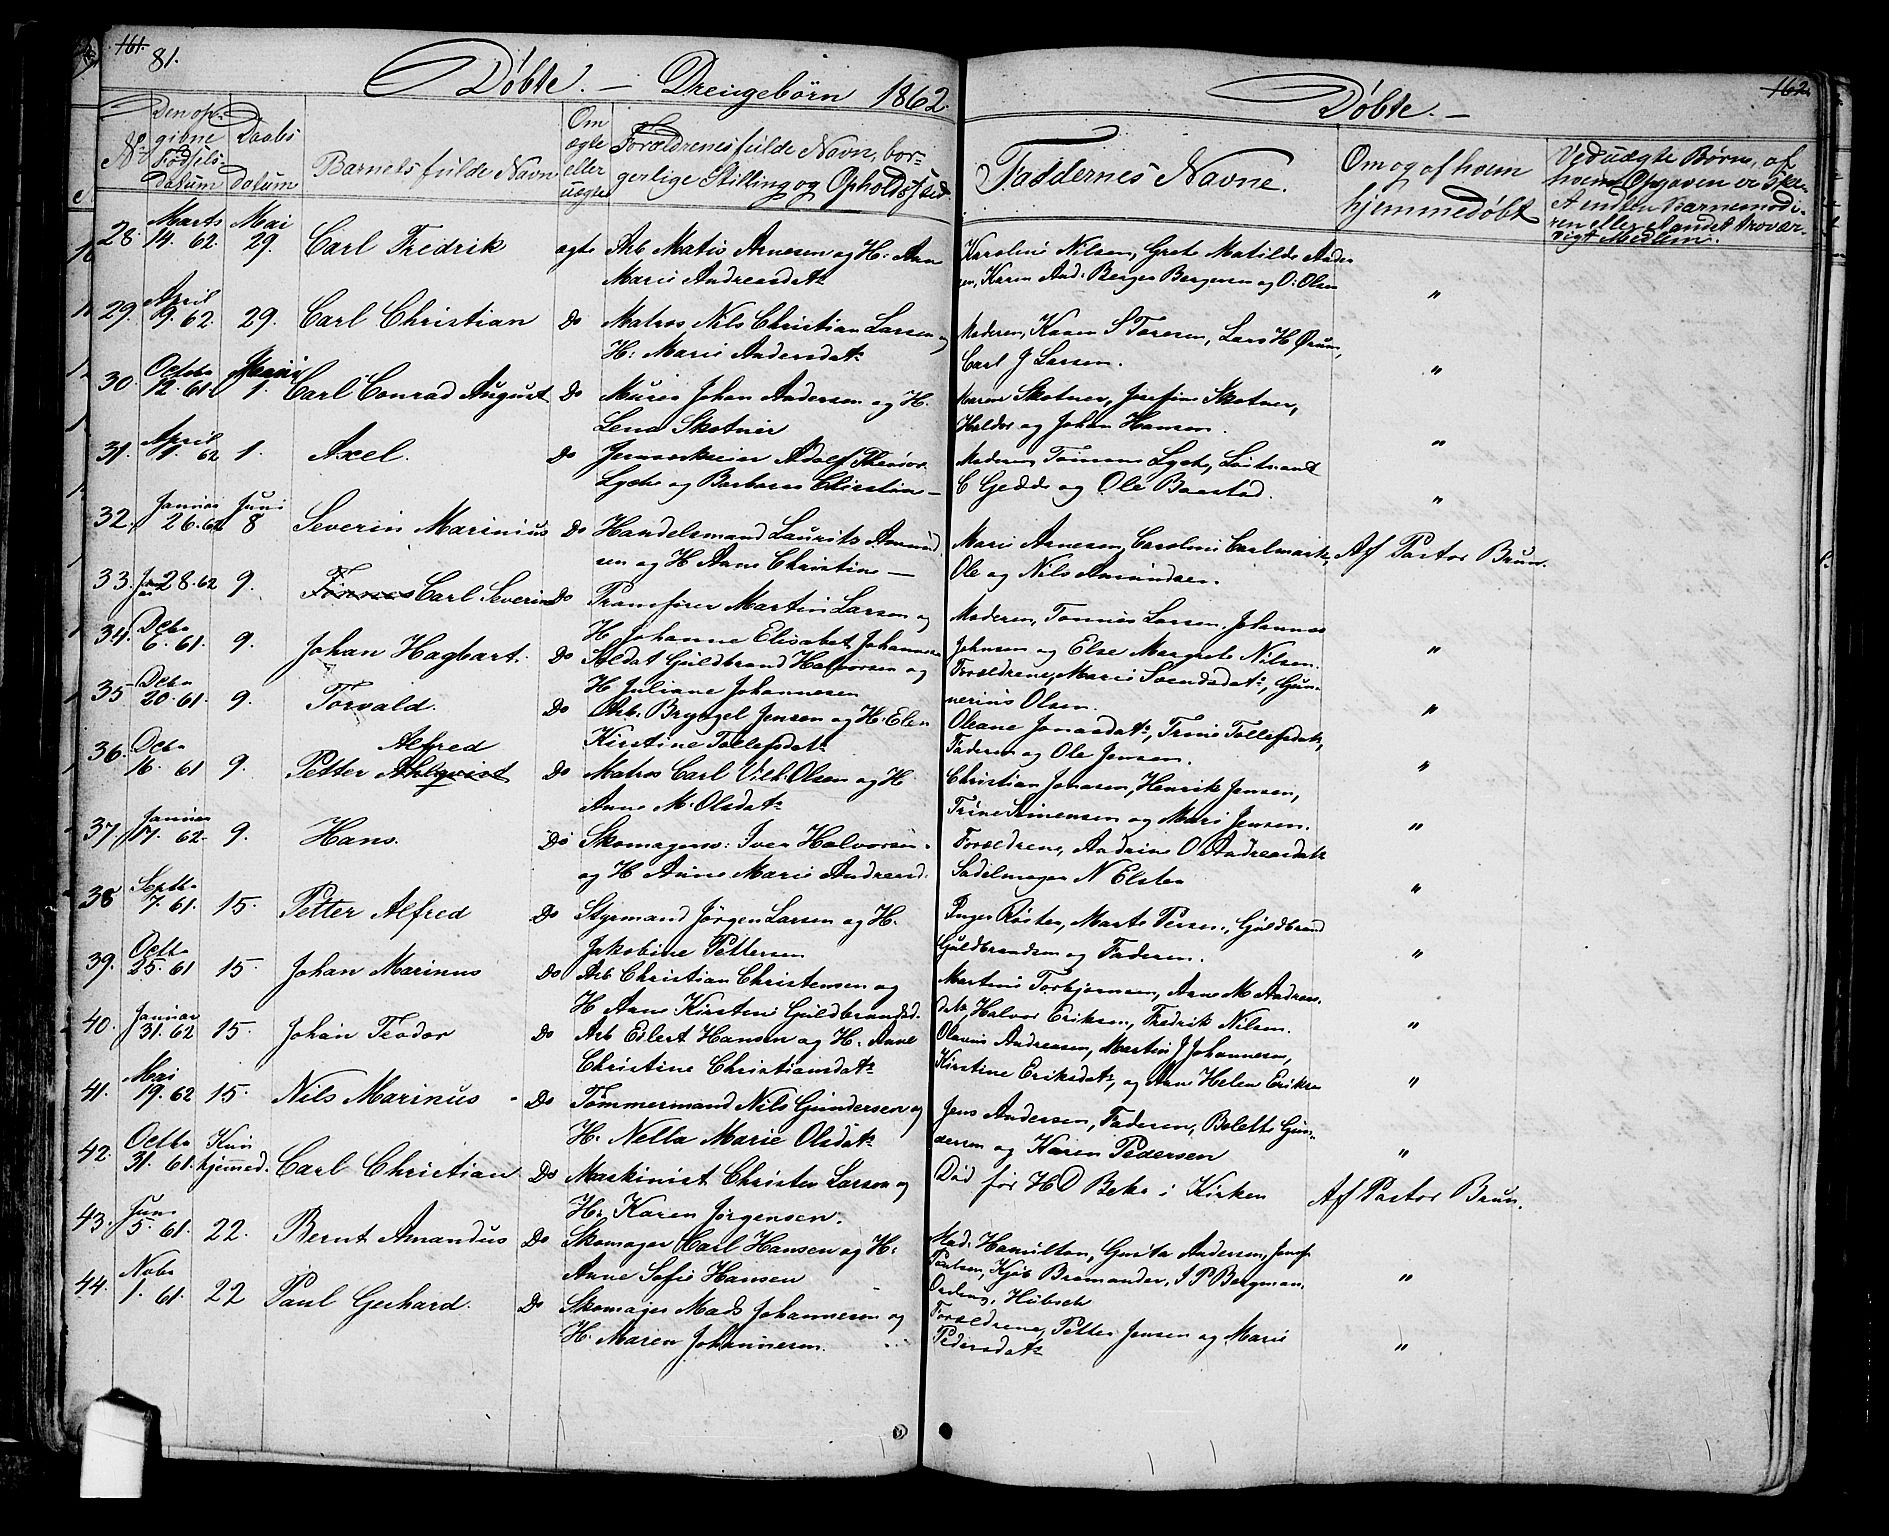 161. 81.
Døbte. — Drengebørn 1862.
Døbte. —
162.
No
Den op-
givne
Fødsels-
Datum
Daabs
datum
Barnets fulde Navn
Om
ægte
eller
uægte
Forældrenes fulde Navn, bor-
gerlige Stilling og Opholdssted
Faddernes Navne.
Om og af hvem
hjemmedøbt
Ved uægte Børn, af
hvem Opgaven er ske-
ren eller et andet trovær-
digt Medlem.
28. Marts 14. 62. Mai 29. Carl Fredrik ægte Arb. Matis Arnesen og H. Ane
Marie Andreasdatr
Karoline Nilsen, Grete Matilde Ander
sen, Karen And. Berger Bergersen og O. Olsen "
29. April 19. 62. 29. Carl Christian Do Matros Nils Christian Larsen og
H. Marie Andersdatr
Moderen, Karen S Toresen, Lars H Ørum,
Carl J Larsen. "
30. Octbr 12. 61. 1. Carl Conrad August Do Murer Johan Andersen og H.
Lena Skotner
Maren Skotner, Josefine Skotner,
Haldor og Johan Hansen. "
31. April 11. 62 1. Axel. Do Adolf
Lyche og Barbara Christine —
Moderen, Lyche, Løitnant
C Gedde og Ole Baastad. "
32. Januar 26. 62 Juni 8 Severin Marinius Do Handelsmand Laurits Amund
sen og H Anne Christine —
Marie Arnesen, Caroline Carlmark,
Ole og Nils Amundsen. Af Pastor Brun.
33. Jan 28. 62 9. Carl Severin Do Pramfører Martin Larsen og
H. Johanne Elisabet Johannesen
Moderen, Tønnes Larsen, Johannes
Johnsen og Else Margrete Nilsen. "
34. Decbr 6. 61. 9. Johan Hagbart. Do Soldat Guldbrand Halvorsen og
H Juliane Johannesen
Forældrene, Marie Svendsdatr, Gun-
nerius Olsen. "
35 Decbr 20. 61. 9. Torvald. Do Arb. Bryngel Jensen og H. Elen
Kirstine Tollefsdatr
Oleane Jonasdatr, Trine Tollefsdatr,
Faderen og Ole Jensen. "
36. Octbr 16. 61 9. Petter Ahlqvist Alfred Do Matros Carl Vilh. Olsen og H
Anne M. Olsdatr
Christian Jonasen, Henrik Jensen,
Trine Simensen og Mari Jensen. "
37. Januar 17. 62. 9. Hans. Do Skomagersv. Iver Halvorsen
og H Anne Marie Andreasd.
Forældrene, Andrine O Andreasdatr
Sadelmager N Elster "
38 Septbr 7. 61. 15. Petter Alfred Do Styrmand Jørgen Larsen og H.
Jakobine Pettersen
Inger Røster, Marte Persen, Guldbrand
Guldbrandsen og Faderen. "
39. Octbr 25. 61 15. Johan Marinus Do Arb Christian Christensen og
H Anne Kirstine Guldbrandsd.
Martine Torbjørnsen, Anne M. Andreas
datr, Halvor Eriksen, Fredrik Nilsen. "
40. Januar 31. 62 15. Johan Teodor Do Arb Edlert Hansen og H. Anne
Christine Christiansdatr
Olavus Andreasen, Martin J Johannesen,
Kirstine Eriksdatr, og Ane Helene Eriksen "
41. Mai 19. 62 15. Nils Marinus Do Tømmermand Nils Gundersen og
H. Nella Marie Olsdatr
Jens Andersen, Faderen, Bolette Gun-
dersen og Karen Pedersen "
42. Octbr 31. 61. Kun hjemmed. Carl Christian Do Maskinist Christen Larsen og
H. Karen Jørgensen.
Død før H D Bekr i Kirken Af Pastor Brun.
43. Juni 5. 61. 22. Bernt Amandus Do Skomager Carl Hansen og H.
Anne Sofie Hansen
Mad. Hamilton, Gusta Andersen, Josef
Poulsen, Kjøb Bromander, J P Bergman,
Hübsch "
44. Nobr 1. 61. 22 Paul Gerhard. Do Skomager Mads Johannesen og
H. Maren Johannesen.
Forældrene, Petter Jensen og Marie
Pedersdatr "